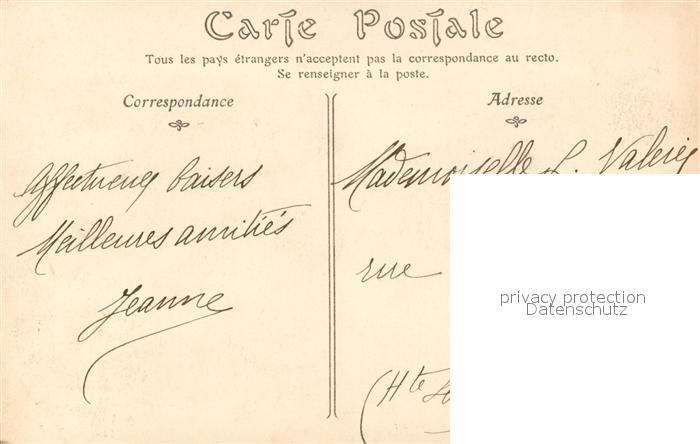 Carte Postale
Tous les pays étrangers n'acceptent pas la correspondance au recto.
Se renseigner à la poste.
Correspondance
Affectueux baisers
Meilleures amitiés
Jeanne
Adresse
Mademoiselle L.
rue
(Hte
privacy protection
Datenschutz